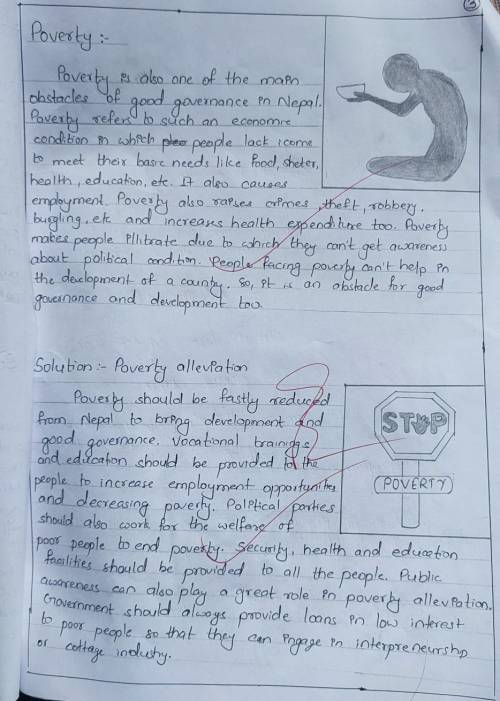 3
Poverty :-
Poverty is also one of the main
obstacles of good governance in Nepal.
Poverty refers to such an economic
condition in which people lack icome
to meet their basic needs like food, sheter,
health, education, etc. It also causes
employment. Poverty also raises crimes, theft, robbery,
burgling, etc and increases health expenditure too. Poverty
makes people illitrate due to which they can't get awareness
about political condition. People facing poverty can't help in
the development of a county. So, it is an obstacle for good
governance and development too.
Solution :- Poverty alleviation
Poverty should be fastly reduced
from Nepal to bring development and
good governance. Vocational trainings
and education should be provided to the
people to increase employment opportunites
and decreasing poverty. Political parties
should also work for the welfare of
poor people to end poverty. Security, health and education
facilities should be provided to all the people. Public
awareness can also play a great role in poverty alleviation.
Government should always provide loans in low interest
to poor people so that they can ingage in interpreneurship
or cottage industry.
STOP
POVERTY